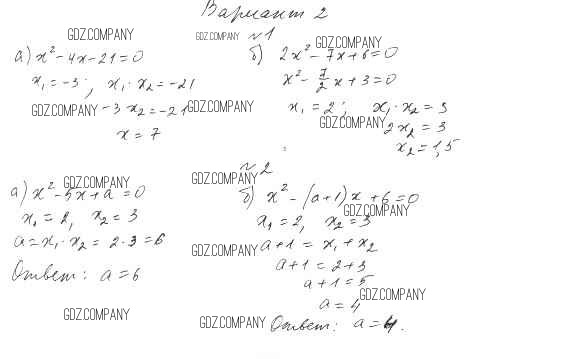 Вариант 2
GDZ.COMPANY
GDZ.COMPANY
№1
GDZ.COMPANY
а) x² - 4x - 21 = 0
x₁ = -3; x₁ · x₂ = -21
GDZ.COMPANY -3 x₂ = -21 GDZ.COMPANY
x = 7
б) 2x² - 7x + 6 = 0
x² - 7/2 x + 3 = 0
x₁ = 2; x₁ · x₂ = 3
GDZ.COMPANY 2x₂ = 3
x₂ = 1,5
№2
GDZ.COMPANY
GDZ.COMPANY
а) x² - 5x + a = 0
x₁ = 2, x₂ = 3
a = x₁ · x₂ = 2 · 3 = 6
Ответ: a = 6
GDZ.COMPANY
б) x² - (a+1)x + 6 = 0
GDZ.COMPANY
x₁ = 2, x₂ = 3
GDZ.COMPANY a + 1 = x₁ + x₂
a + 1 = 2 + 3
a + 1 = 5
GDZ.COMPANY
a = 4
GDZ.COMPANY Ответ: a = 4.